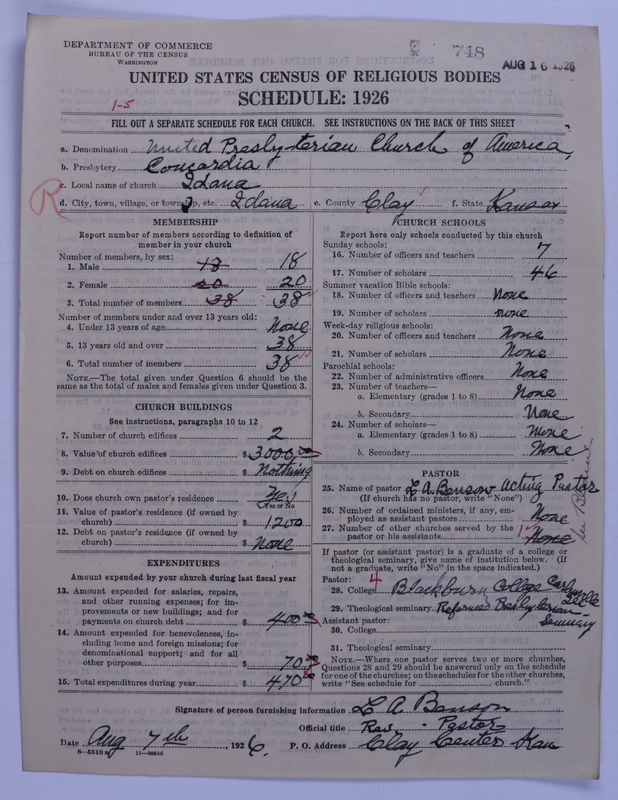 DEPARTMENT OF COMMERCE
BUREAU OF THE CENSUS
WASHINGTON
748
AUG 16 1926
UNITED STATES CENSUS OF RELIGIOUS BODIES
1-5
SCHEDULE: 1926
FILL OUT A SEPARATE SCHEDULE FOR EACH CHURCH. SEE INSTRUCTIONS ON THE BACK OF THIS SHEET
a. Denomination United Presbyterian Church of America,
b. Presbytery Concordia
c. Local name of church Idana
R
d. City, town, village, or township, etc. Idana e. County Clay f. State Kansas
MEMBERSHIP
Report number of members according to definition of
member in your church
Number of members, by sex:
1. Male 18 18
2. Female 20 20
3. Total number of members 38 38
Number of members under and over 13 years old:
4. Under 13 years of age None
5. 13 years old and over 38
6. Total number of members 38
NOTE.—The total given under Question 6 should be the
same as the total of males and females given under Question 3.
CHURCH BUILDINGS
See instructions, paragraphs 10 to 12
7. Number of church edifices 2
8. Value of church edifices $ 3000.00
9. Debt on church edifices $ Nothing
10. Does church own pastor's residence Yes
Yes or No
11. Value of pastor's residence (if owned by
church) $ 1200
12. Debt on pastor's residence (if owned by
church) $ None
EXPENDITURES
Amount expended by your church during last fiscal year
13. Amount expended for salaries, repairs,
and other running expenses; for im-
provements or new buildings; and for
payments on church debt $ 400
14. Amount expended for benevolences, in-
cluding home and foreign missions; for
denominational support; and for all
other purposes $ 70
15. Total expenditures during year $ 470
CHURCH SCHOOLS
Report here only schools conducted by this church
Sunday schools:
16. Number of officers and teachers 7
17. Number of scholars 46
Summer vacation Bible schools:
18. Number of officers and teachers None
19. Number of scholars none
Week-day religious schools:
20. Number of officers and teachers None
21. Number of scholars None
Parochial schools:
22. Number of administrative officers None
23. Number of teachers—
a. Elementary (grades 1 to 8) None
b. Secondary None
24. Number of scholars—
a. Elementary (grades 1 to 8) None
b. Secondary None
PASTOR
25. Name of pastor L A Benson Acting Pastor
(If church has no pastor, write "None")
26. Number of ordained ministers, if any, em-
ployed as assistant pastors None
27. Number of other churches served by the
pastor or his assistants 1 None
See
If pastor (or assistant pastor) is a graduate of a college or
theological seminary, give name of institution below. (If
not a graduate, write "No" in the space indicated.)
Pastor: 4
28. College Blackburn College Carlinville
29. Theological seminary Reformed Presbyterian Seminary
Assistant pastor:
30. College
31. Theological seminary
NOTE.—Where one pastor serves two or more churches,
Questions 28 and 29 should be answered only on the schedule
for one of the churches; on the schedules for the other churches,
write "See schedule for church."
Signature of person furnishing information L A Benson
Official title Rev. - Pastor
Date Aug 7th, 1926. P. O. Address Clay Center Kan
8-5518 a 11-9684d